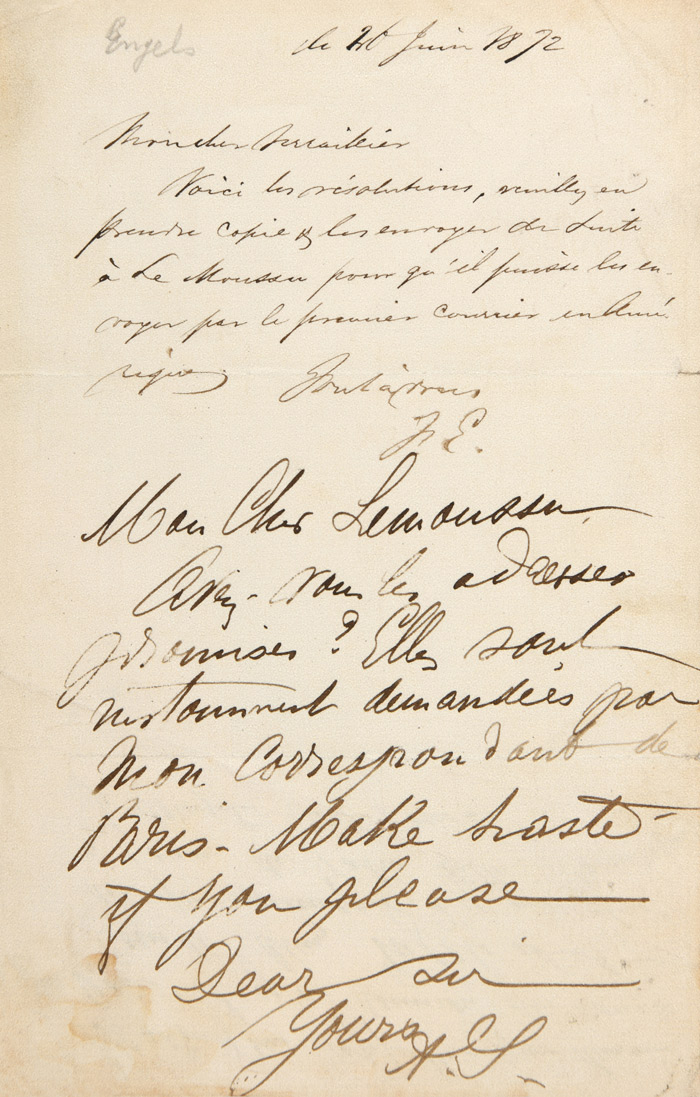 Engels
le 20 Juin 1872
Mon cher Serraillier
Voici les résolutions, veuillez en
prendre copie & les envoyer de suite
à Le Moussu pour qu'il puisse les en-
voyer par le premier courrier en Amé-
rique
Tout à vous
F. E.
Mon Cher Lemoussu
Avez-vous les adresses
promises? Elles sont
instamment demandées par
mon Correspondant de
Paris - Make haste
if you please
Dear Sir
Yours A. S.